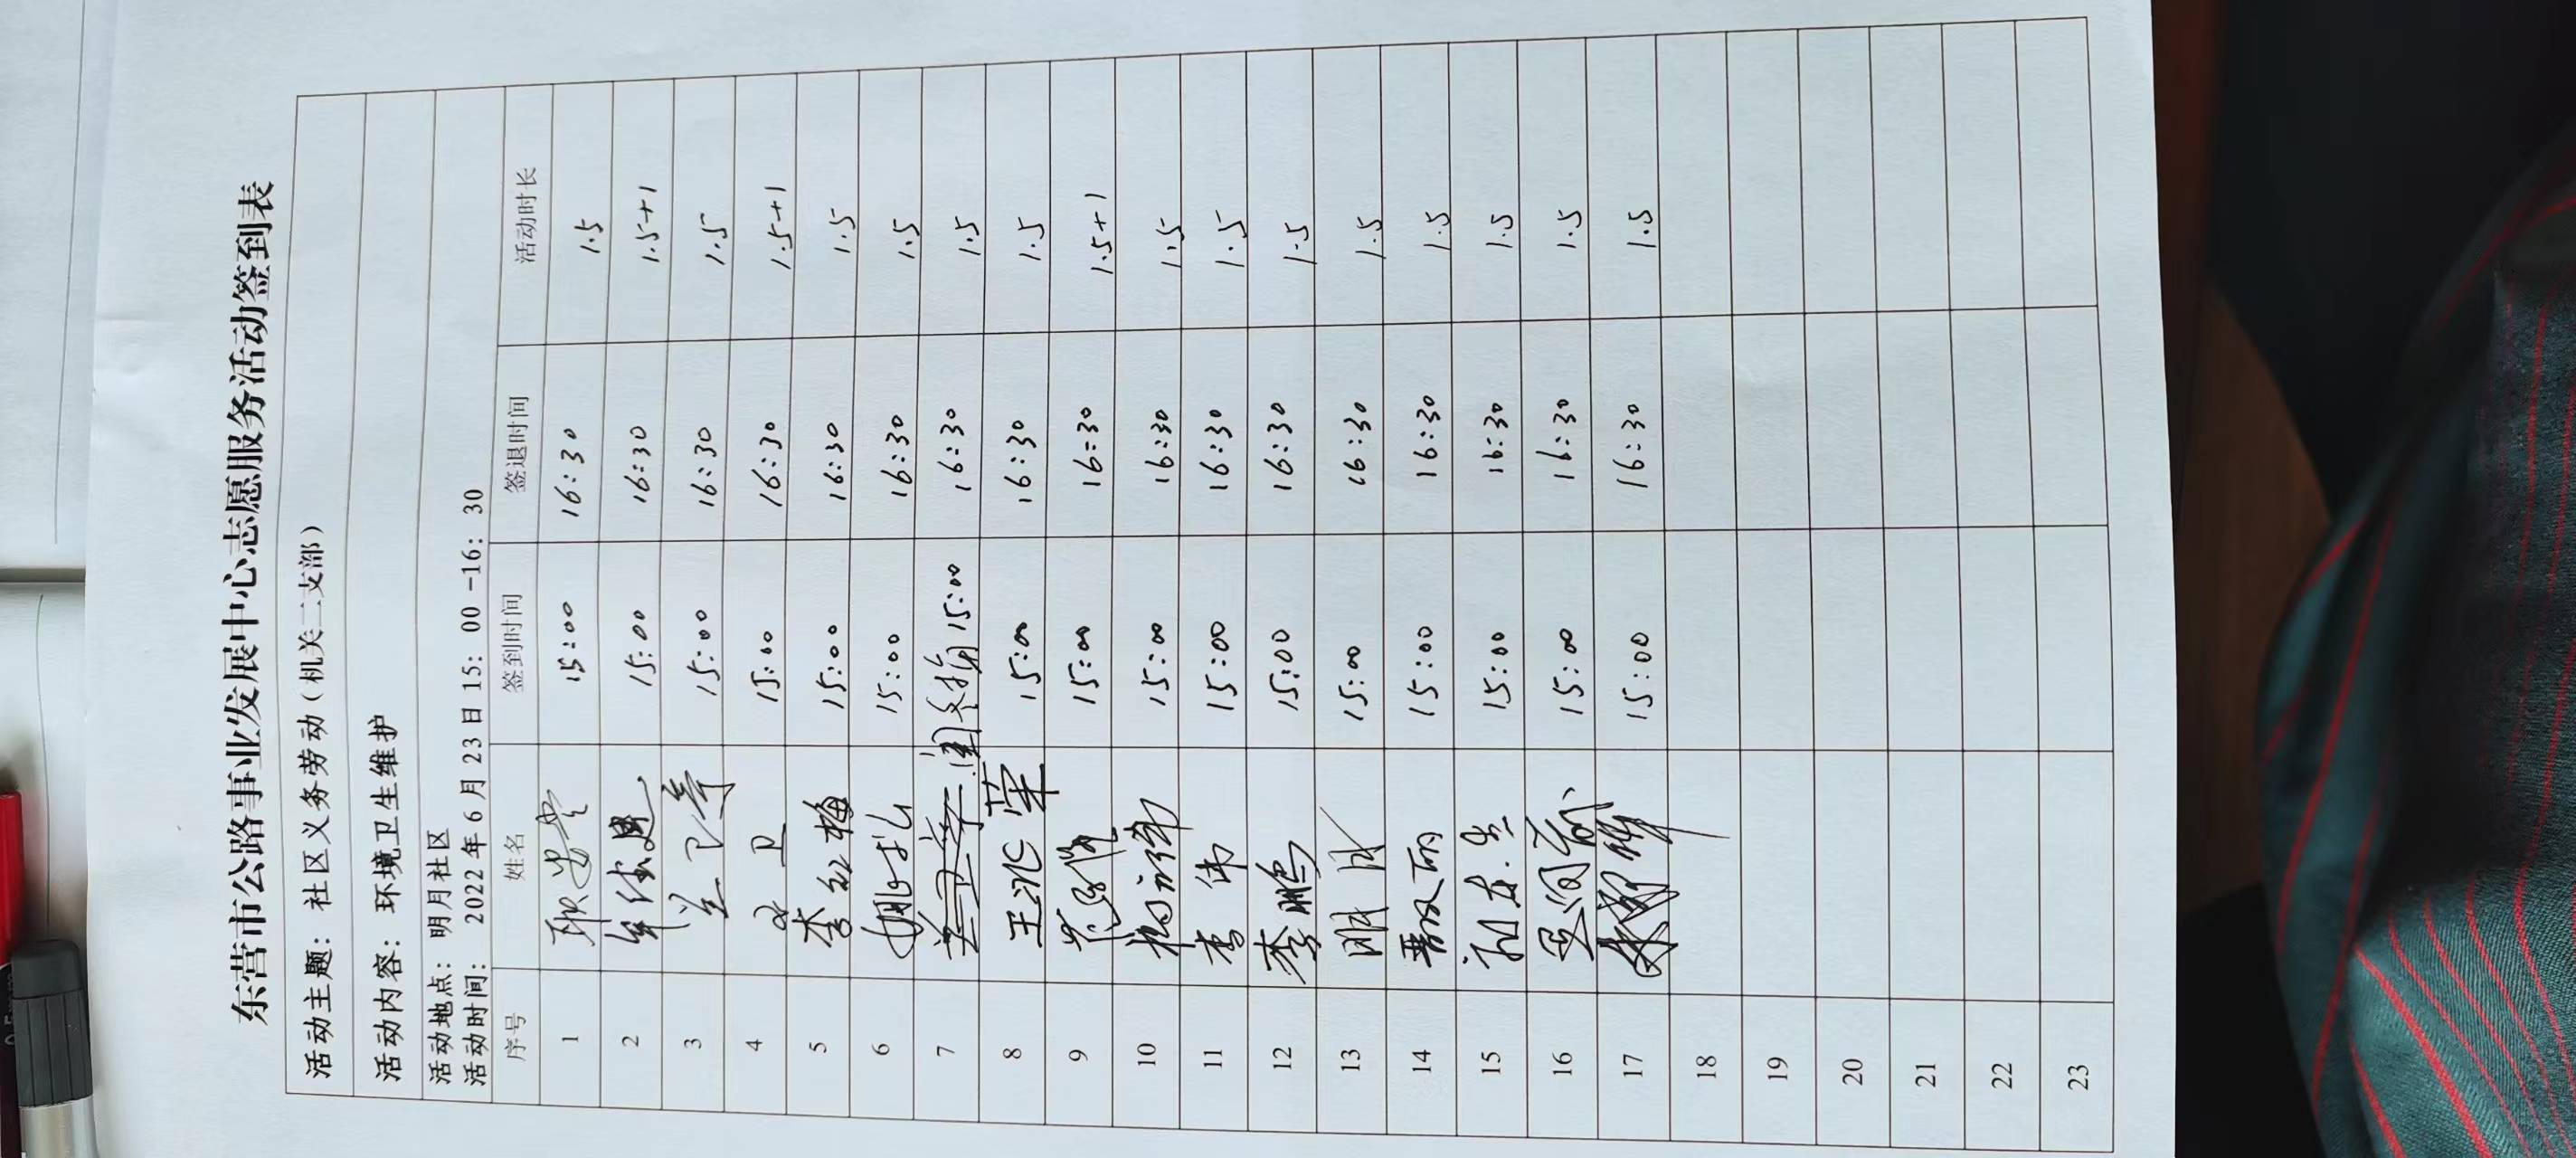 东营市公路事业发展中心志愿服务活动签到表
活动主题：社区义务劳动（机关二支部）
活动内容：环境卫生维护
活动地点：明月社区
活动时间：2022年6月23日15：00-16：30
序号 姓名 签到时间 签退时间 活动时长
1 15:00 16:30 1.5
2 15:00 16:30 1.5+1
3 15:00 16:30 1.5
4 卫 15:00 16:30 1.5+1
5 李红梅 15:00 16:30 1.5
6 15:00 16:30 1.5
7 15:00 16:30 1.5
8 王冰荣 15:00 16:30 1.5
9 15:00 16:30 1.5+1
10 15:00 16:30 1.5
11 李伟 15:00 16:30 1.5
12 李鹏 15:00 16:30 1.5
13 15:00 16:30 1.5
14 15:00 16:30 1.5
15 15:00 16:30 1.5
16 15:00 16:30 1.5
17 15:00 16:30 1.5
18
19
20
21
22
23